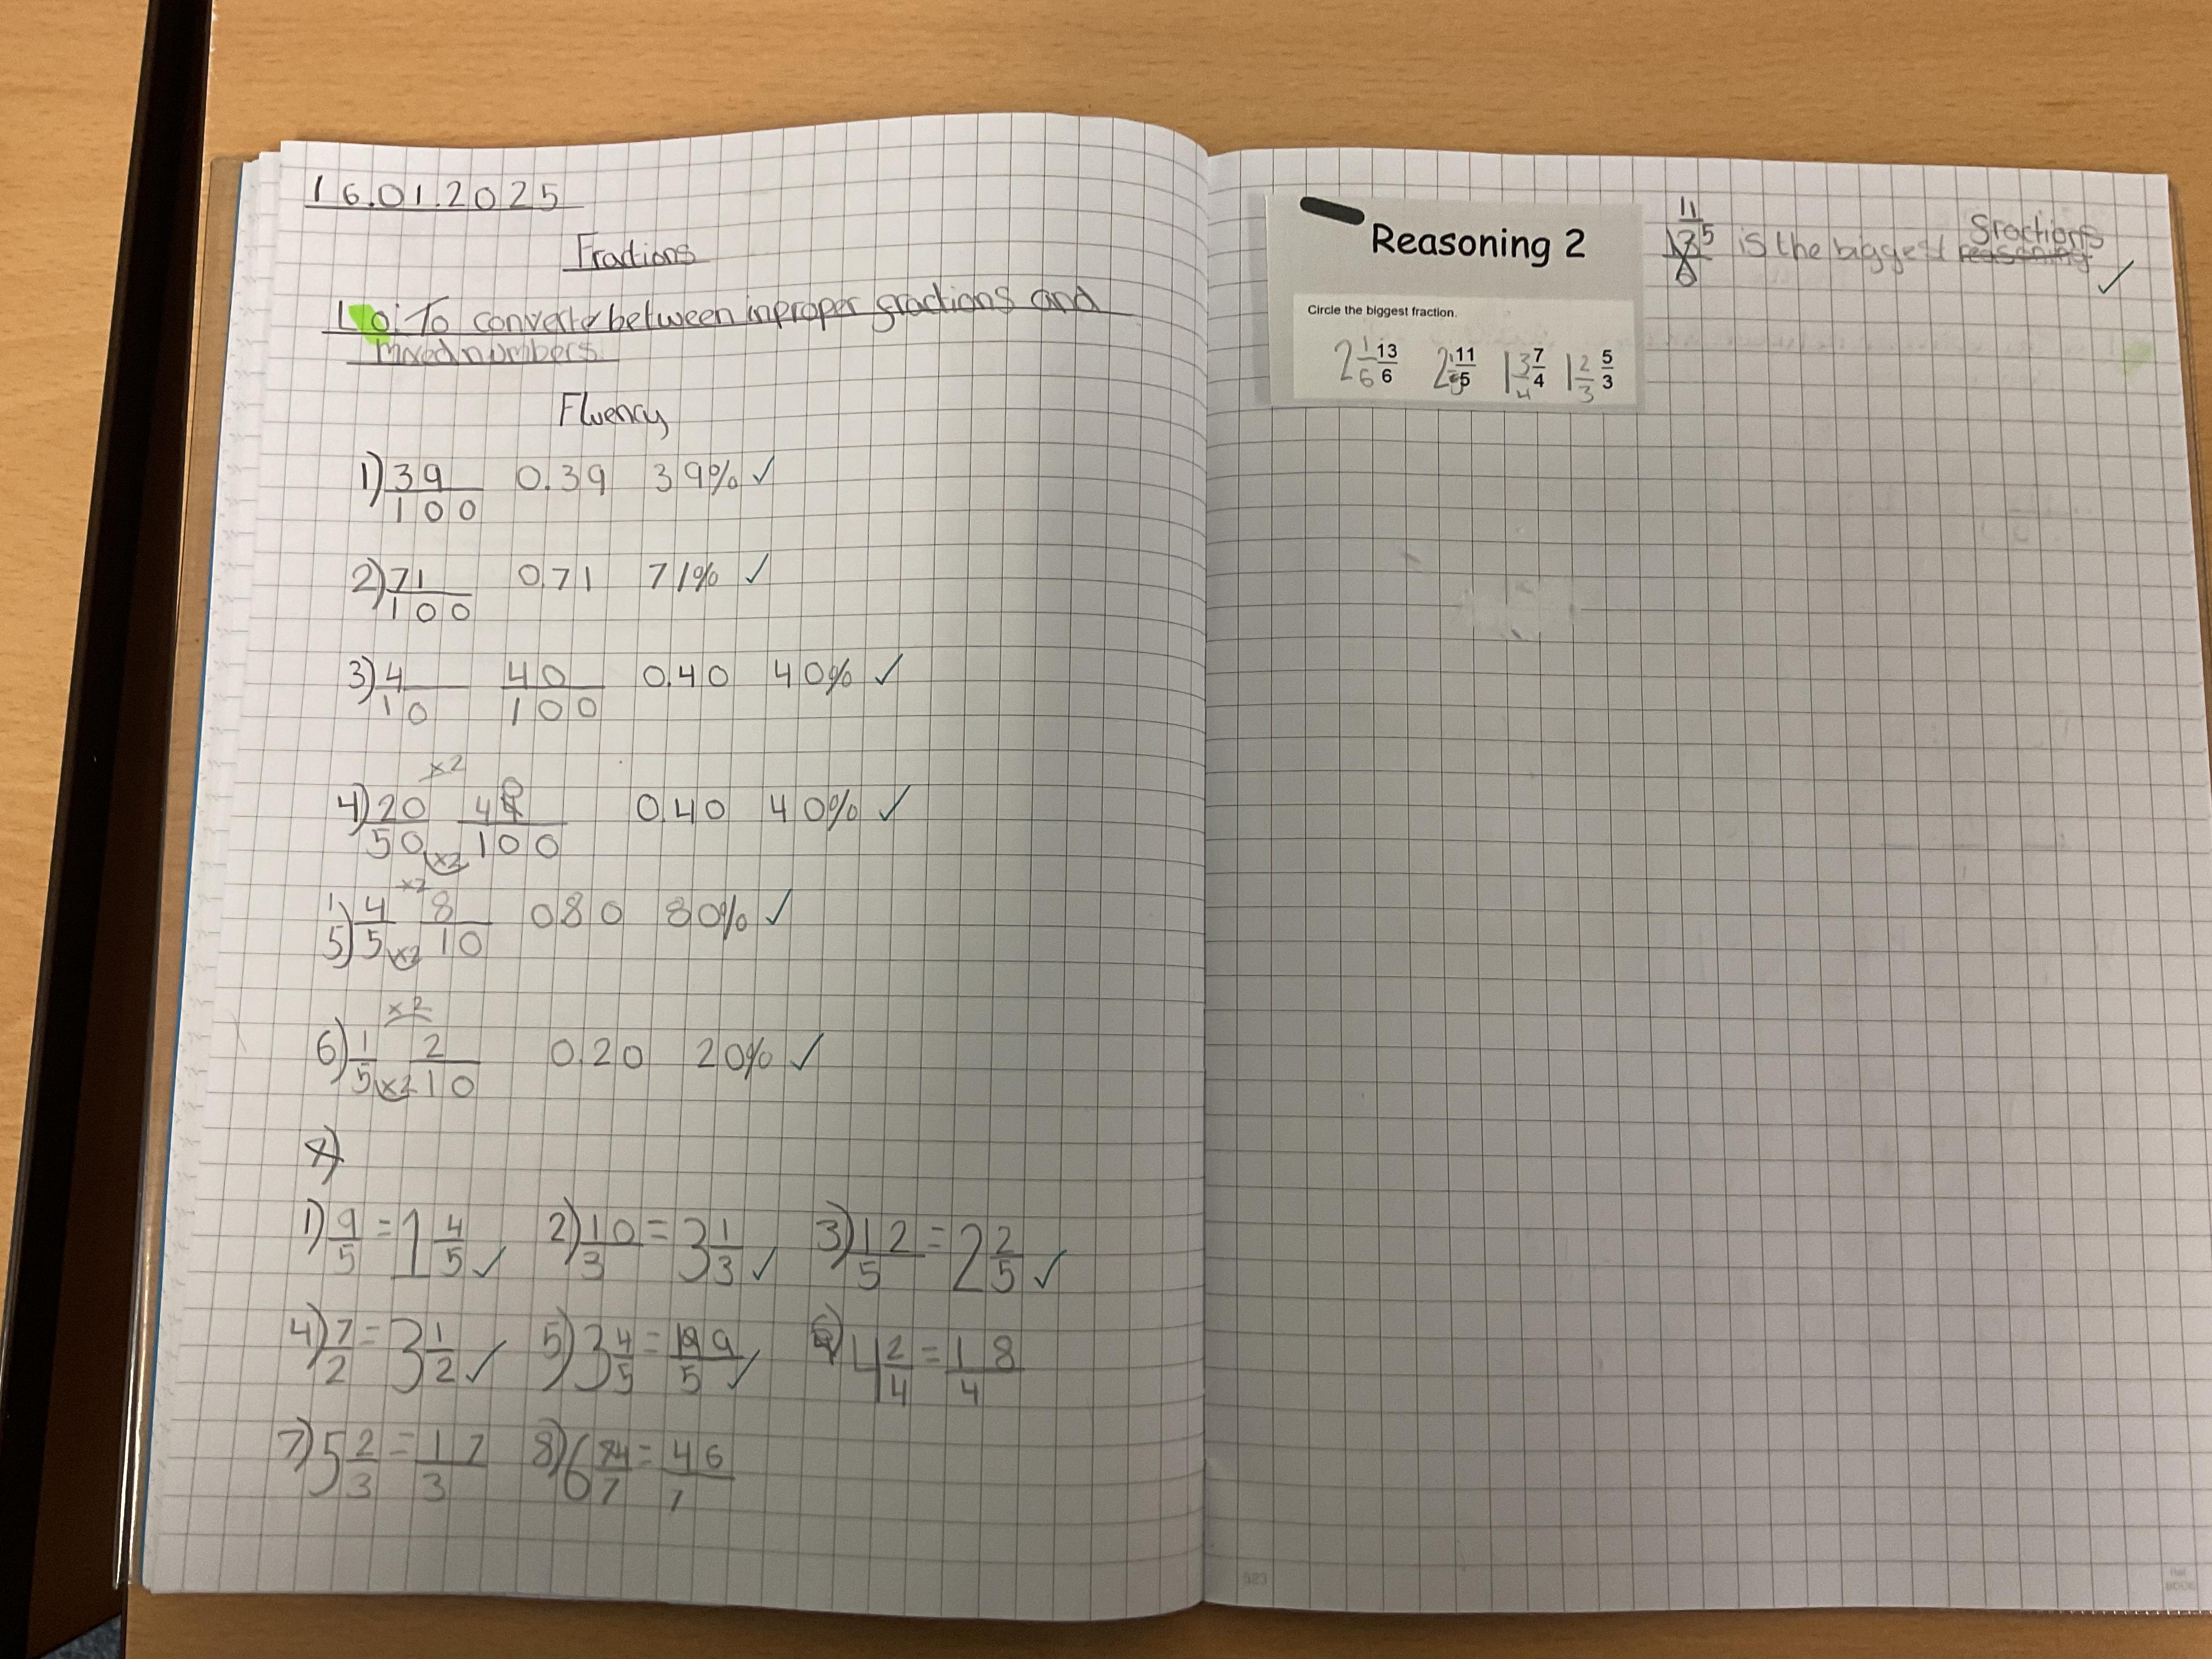 16.01.2025
Fractions
Lo: To converte between inproper fractions and
mixed numbers
Fluency
1) 39/100 0.39 39% ✓
2) 71/100 0.71 71% ✓
3) 4/10 40/100 0.40 40% ✓
×2
4) 20/50 40/100 0.40 40% ✓
×2
×2
5) 4/5 8/10 0.80 80% ✓
×2
×2
6) 1/5 2/10 0.20 20% ✓
×2
1) 9/5 = 1 4/5 ✓ 2) 10/3 = 3 1/3 ✓ 3) 12/5 = 2 2/5 ✓
4) 7/2 = 3 1/2 ✓ 5) 3 4/5 = 19/5 ✓ 6) 4 2/4 = 18/4
7) 5 2/3 = 17/3 8) 6 4/7 = 46/7
Reasoning 2
Circle the biggest fraction.
2 1/6 13/6 2 1/5 11/5 1 3/4 7/4 1 2/3 5/3
11/5 is the biggest reasoning fractions ✓
523